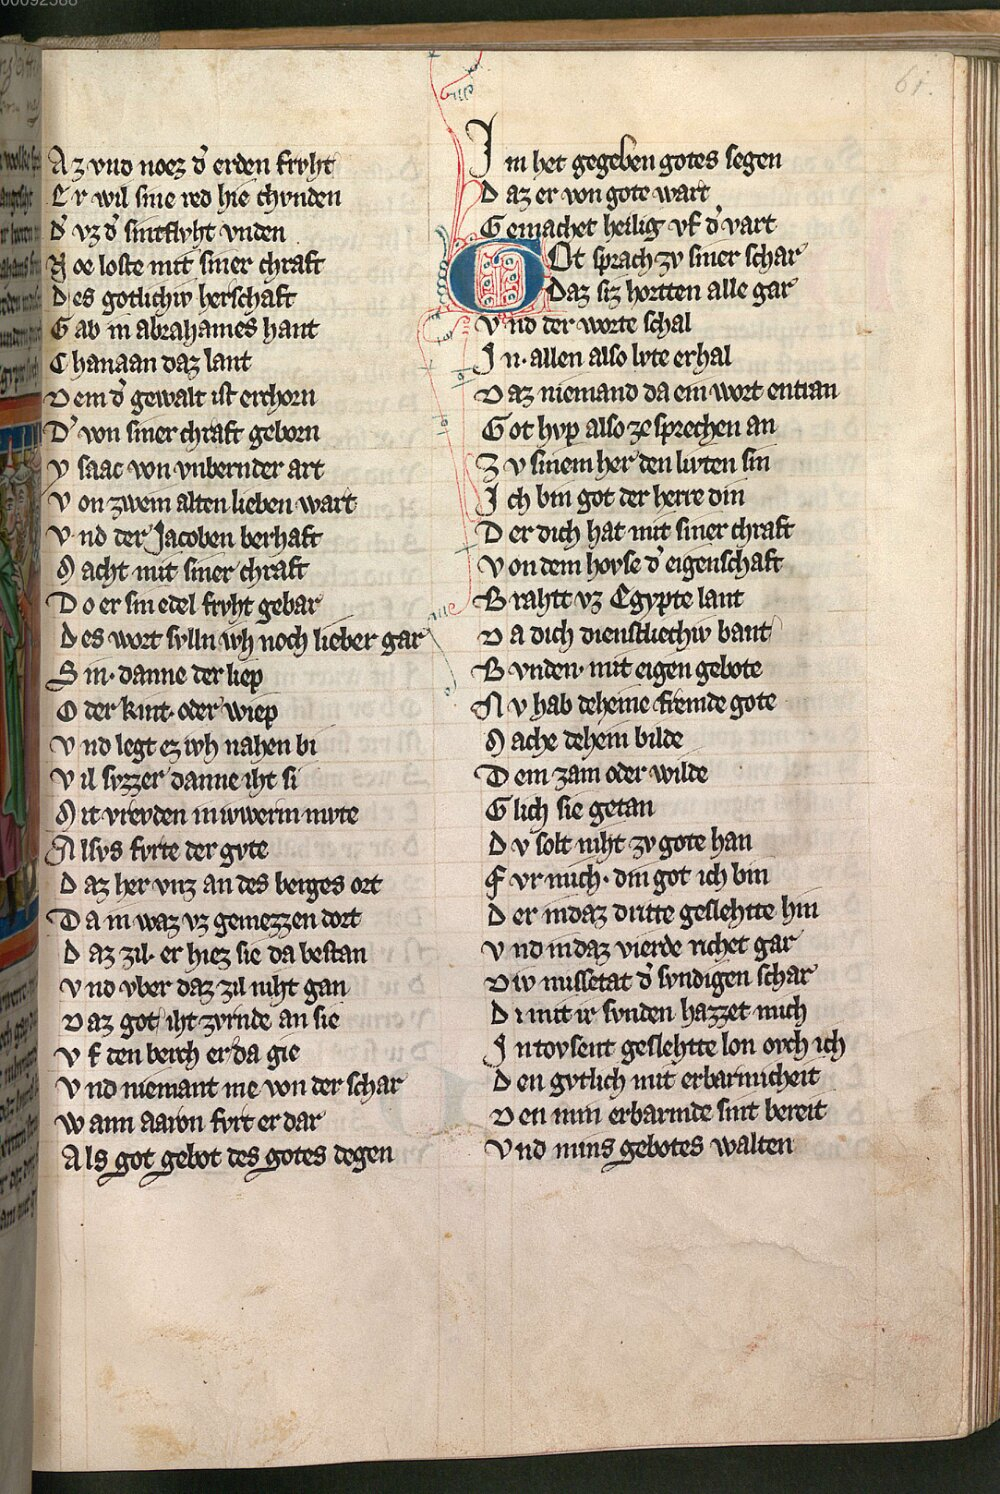 00092588
61.
Az vnd noez d' erden frvht
Er wil sine red hie chvnden
D' vz d' sintflvht vnden
Noe loste mit siner chraft
Des gotlichiv herschaft
Gab in abrahames hant
Chanaan daz lant
Dem d' gewalt ist erchorn
D' von siner chraft geborn
Ysaac von vnbernder art
Von zwein alten lieben wart
Vnd der Jacoben berhaft
Macht mit siner chraft
Do er sin edel frvht gebar
Des wort svlln ivh noch lieber gar
Sin. danne der liep
Oder kint. oder wiep
Vnd legt ez ivh nahen bi
Vil svzzer danne iht si
Mit vrevden in iwerm mvte
Alsvs fvrte der gvte
Daz her vnz an des berges ort
Da in waz vz gemezzen dort
Daz zil. er hiez sie da bestan
Vnd vber daz zil niht gan
Daz got iht zvrnde an sie
Vf den berch er da gie
Vnd niemant me von der schar
Wann aaron fvrt er dar
Als got gebot des gotes degen
Im het gegeben gotes segen
Daz er von gote wart
Gemachet heilig vf d' vart
GOt sprach zv siner schar
Daz siz hortten alle gar
Vnd der worte schal
In. allen also lvte erhal
Daz niemand da ein wort entran
Got hvp also ze sprechen an
Zv sinem her den livten sin
Ich bin got der herre din
Der dich hat mit siner chraft
Von dem hovse d' eigenschaft
Brahtt vz Egypte lant
Da dich dienstliechiv bant
Bvnden. mit eigen gebote
Nv hab deheine fremde gote
Mache dehein bilde
Dem zam oder wilde
Glich sie getan
Dv solt niht zv gote han
Fvr mich. din got ich bin
Der in daz dritte geslehtte hin
Vnd in daz vierde richet gar
Div missetat d' svndigen schar
Di mit ir svnden hazzet mich
In tovsent geslehtte lon ovch ich
Den gvtlich mit erbarmicheit
Den min erbarmde sint bereit
Vnd mins gebotes walten